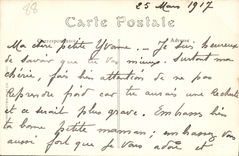 88
25 Mars 1917
Carte Postale
Correspondance
Adresse
Ma chère petite Yvonne. – Je suis heureux
de savoir que tu vas mieux. Surtout ma
chérie, fais bien attention de ne pas
reprendre froid car tu aurais une rechute
et ce serait plus grave. Embrasse bien
ta bonne petite maman ; embrassez vous
aussi fort que je vous adore et